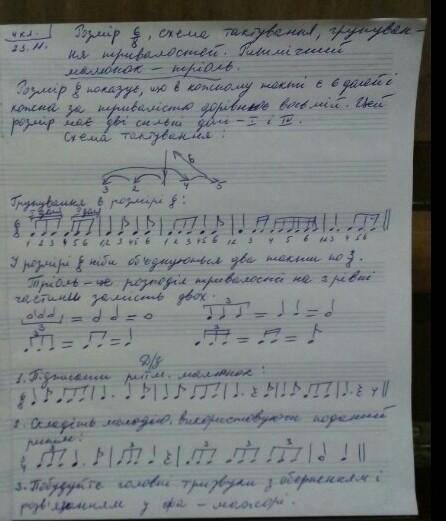 4 кл.
23.11.
Розмір 6/8, схема тактування, групуван-
ня тривалостей. Ритмічний
малюнок – тріоль.
Розмір 6/8 показує, що в кожному такті є 6 долей і
кожна за тривалістю дорівнює восьмій. Цей
розмір має дві сильні долі – I і IV.
Схема тактування:
6
3 2 1 4 5
Групування в розмірі 6/8:
6/8
1 2 3 4 5 6 12 3 45 6 1 2 3 45 6 12 3 4 5 6 123 456
У розмірі 6/8 ніби об'єднуються два такти по 3/8.
Тріоль – це розподіл тривалості на 3 рівні
частини замість двох.
3 = = 3 = =
3 = = 3 = =
Д/з
1. Підписати ритм. малюнок:
6/8
2. Складіть мелодію, використовуючи поданий
ритм:
2/4 3 3 3 3 3
3. Побудуйте головні тризвуки з оберненням і
розв'язанням у фа – мажорі.